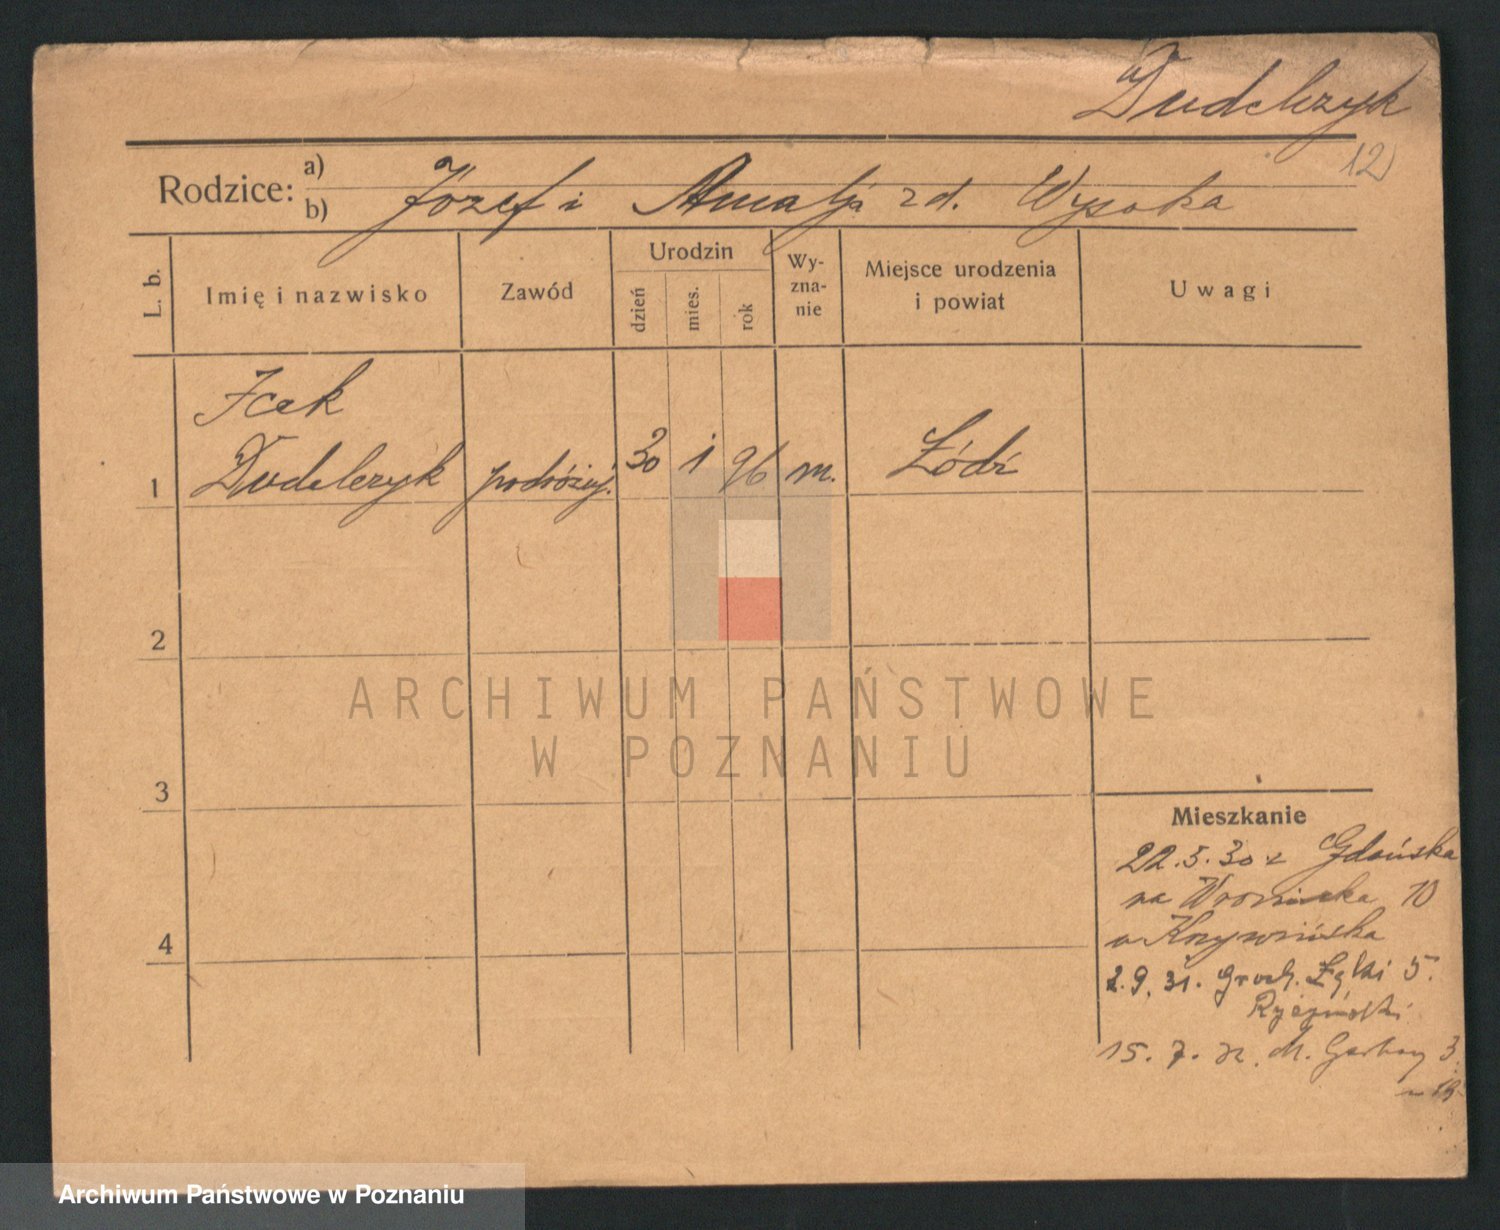 Dudelczyk
12)
Rodzice: a)
b) Józef i Amalja z d. Wysoka
L. b. Imię i nazwisko Zawód Urodzin dzień mies. rok Wy-zna-nie Miejsce urodzenia i powiat Uwagi
Icek
1 Dudelczyk podróżuj. 30 1 96 m. Łódź
2
3
4
Mieszkanie
22.5.30 z Gdańska
na Wroniecka 10
u Krzywińska
2.9.31. Groch. Łąki 5.
15.7.32. M. Garbary 3
ARCHIWUM PAŃSTWOWE
W POZNANIU
Archiwum Państwowe w Poznaniu